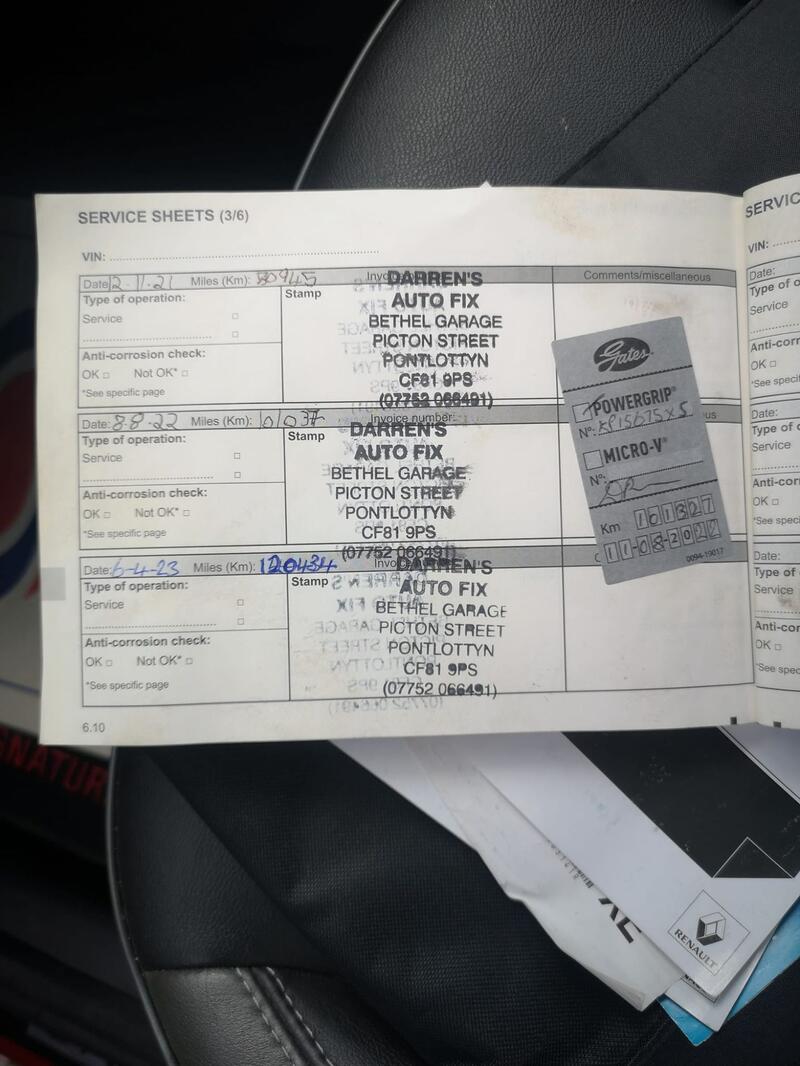 SERVICE SHEETS (3/6)
VIN:
Date: 12-11-21 Miles (Km): 80945 Invoice
Comments/miscellaneous
Type of operation:
Service
Anti-corrosion check:
OK □ Not OK* □
*See specific page
Stamp
DARREN'S
AUTO FIX
BETHEL GARAGE
PICTON STREET
PONTLOTTYN
CF81 9PS
(07752 066491)
Date: 8-8-22 Miles (Km): Invoice number:
Type of operation:
Service
Anti-corrosion check:
OK □ Not OK* □
*See specific page
Stamp
DARREN'S
AUTO FIX
BETHEL GARAGE
PICTON STREET
PONTLOTTYN
CF81 9PS
(07752 066491)
Date: 6-4-23 Miles (Km): 120434
Type of operation:
Service
Anti-corrosion check:
OK □ Not OK* □
*See specific page
Stamp
DARREN'S
AUTO FIX
BETHEL GARAGE
PICTON STREET
PONTLOTTYN
CF81 9PS
(07752 066491)
6.10
Gates
POWERGRIP®
Nº: KP15675X5
MICRO-V®
Nº:
Km 101327
11-08-2022
0094-19017
SERVIC
VIN:
Date:
Type of o
Service
Anti-corr
OK □
*See specif
Date:
Type of o
Service
Anti-co
OK □
*See spec
Date:
Type of
Service
Anti-cor
OK □
*See spec
RENAULT